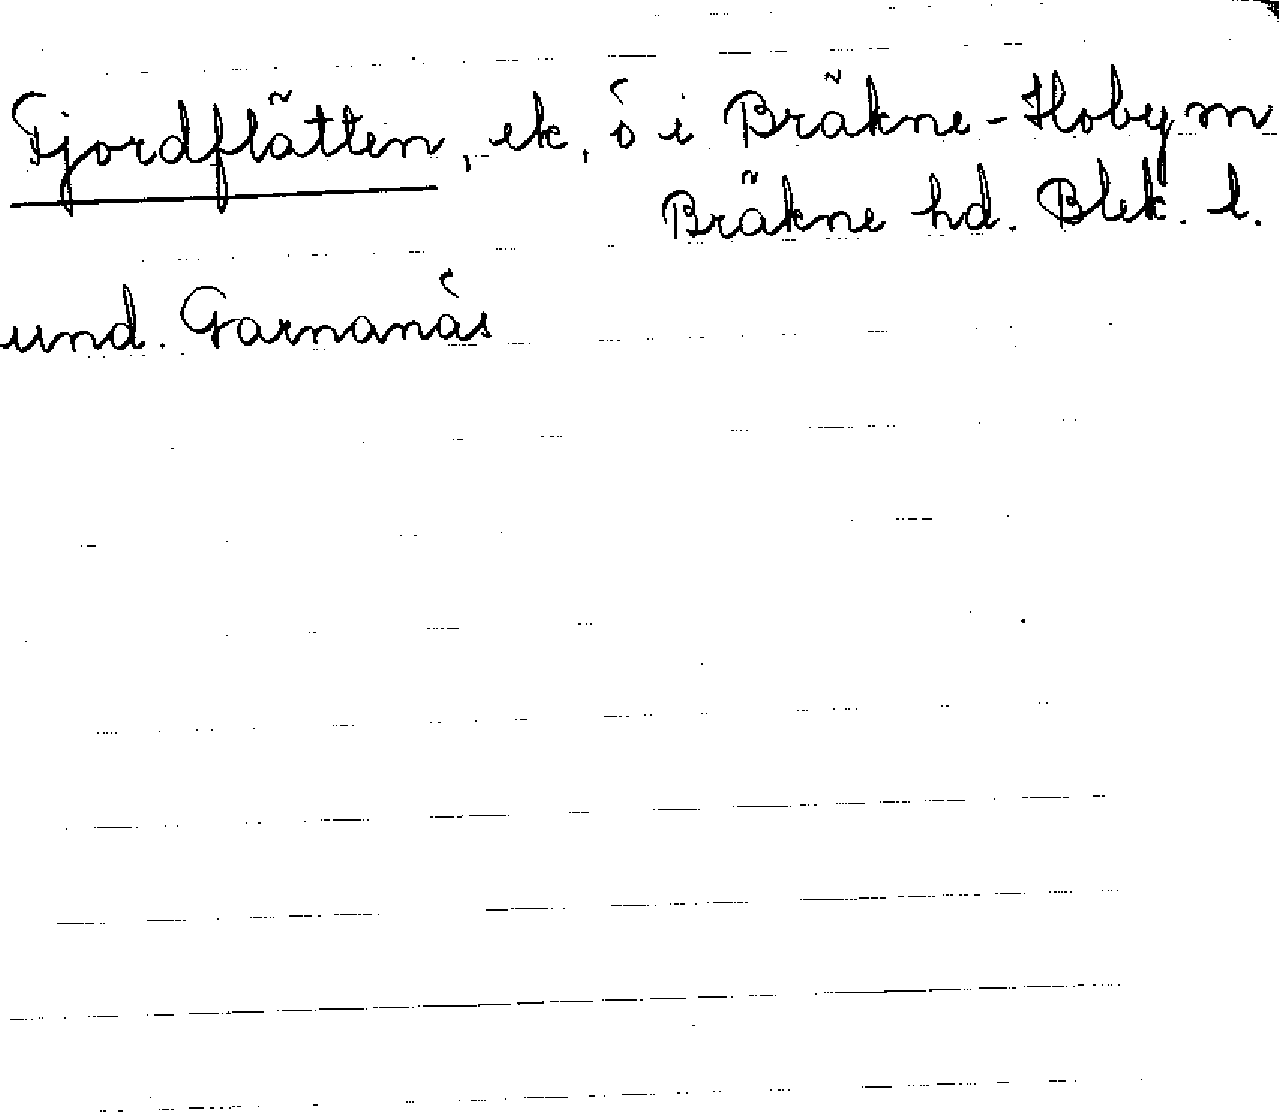 Fjordflätten, ek, ö i Bräkne-Hoby m
Bräkne hd. Blek. l.
und. Garnanäs